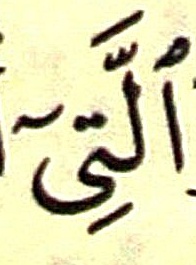 ٱلَّتِىٓ